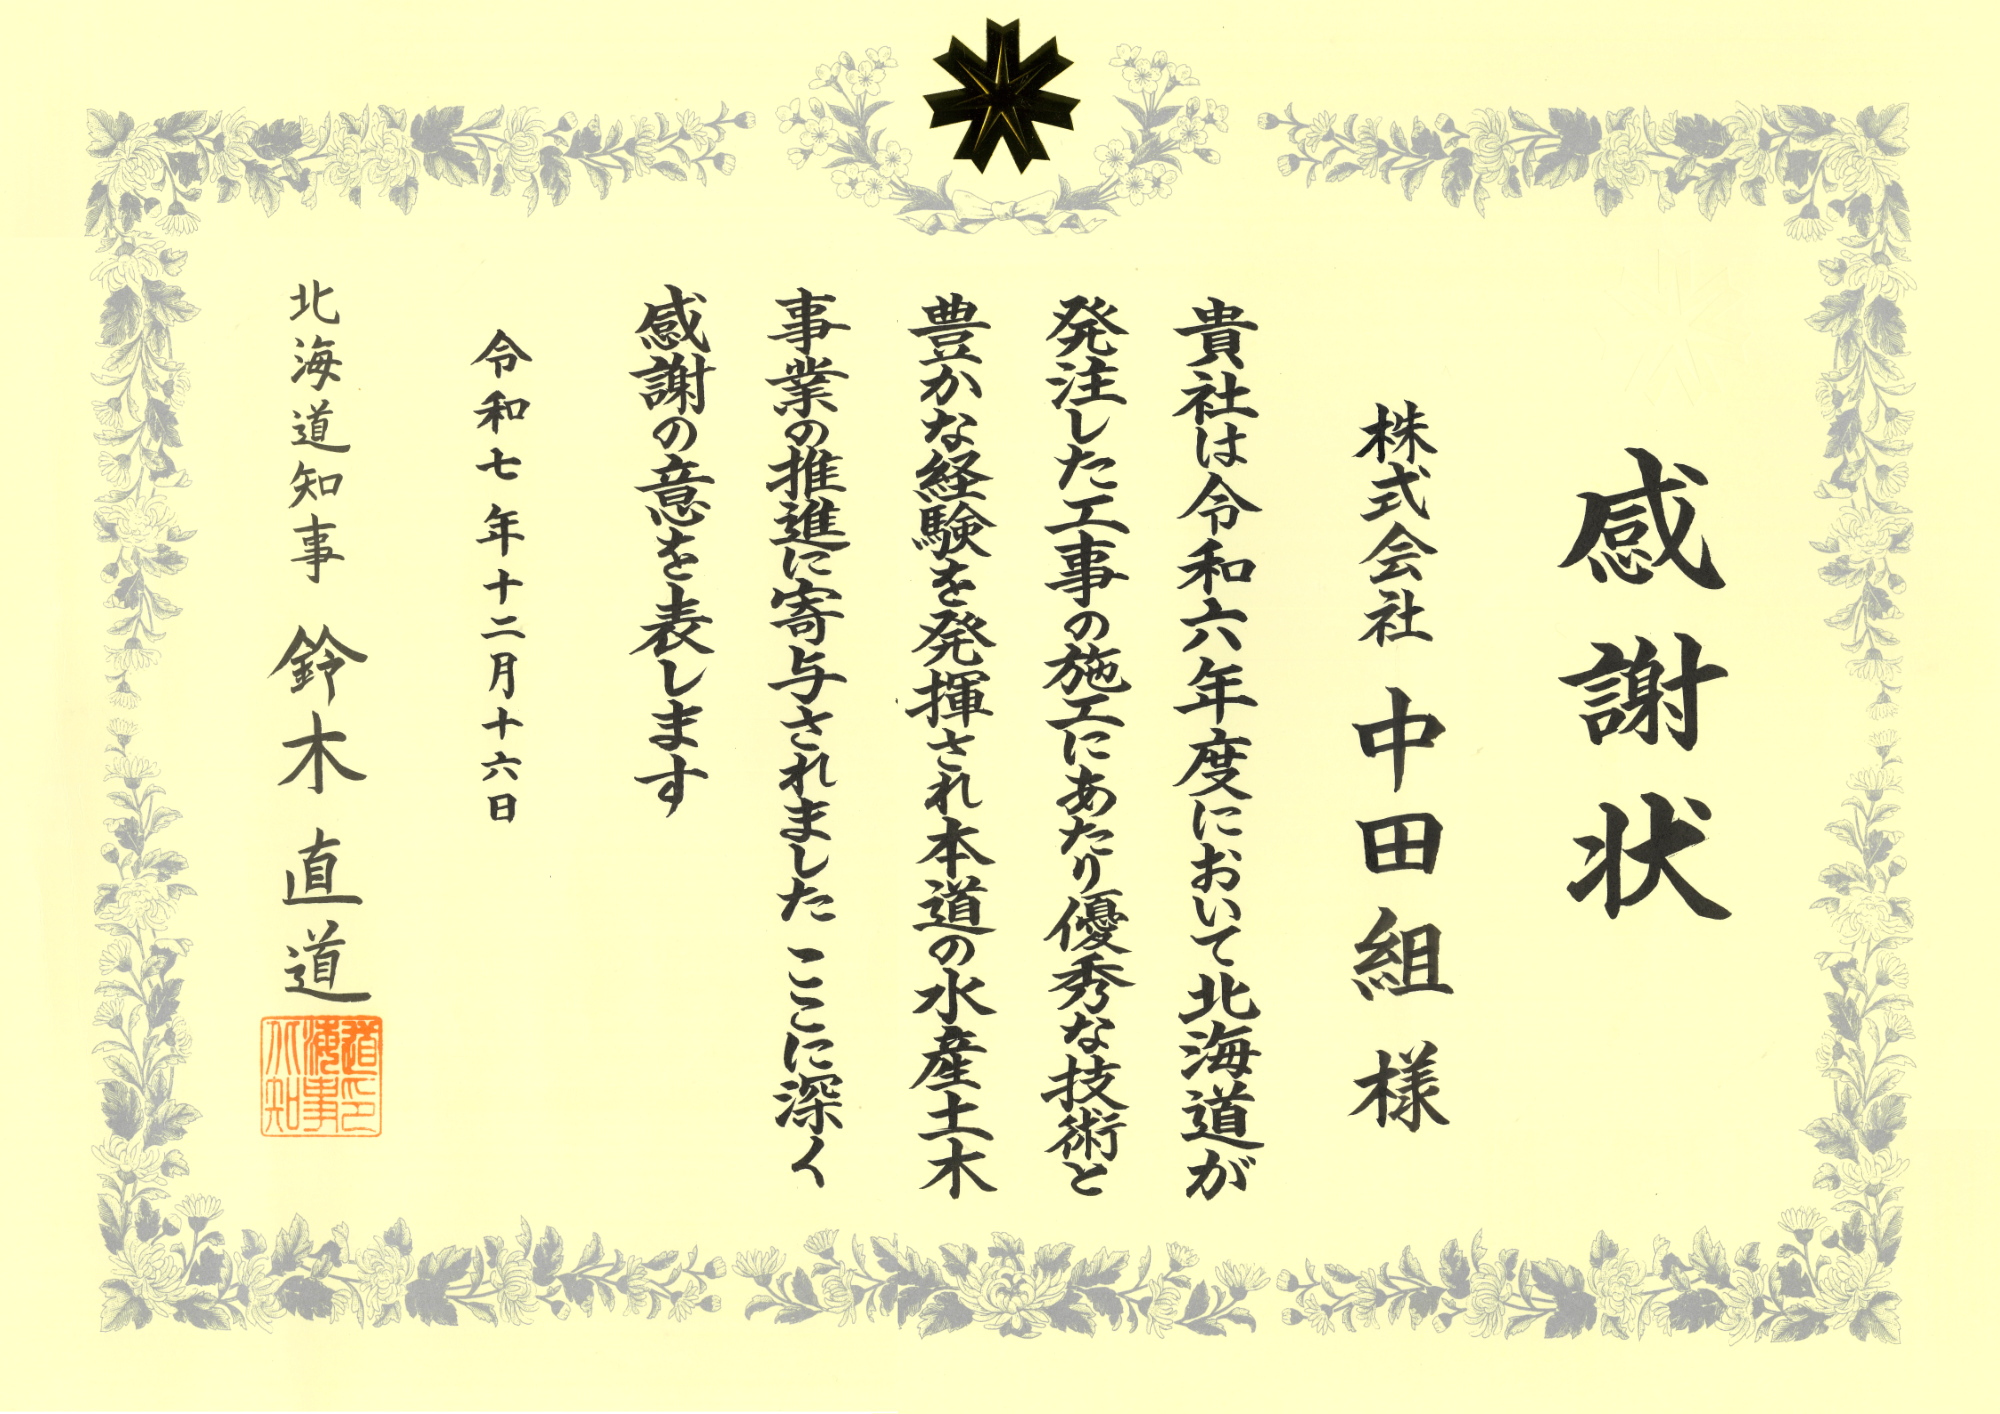 感謝状
株式会社 中田組 様
貴社は令和六年度において北海道が
発注した工事の施工にあたり優秀な技術と
豊かな経験を発揮され本道の水産土木
事業の推進に寄与されました ここに深く
感謝の意を表します
令和七年十二月十六日
北海道知事 鈴木直道
北海道知事印